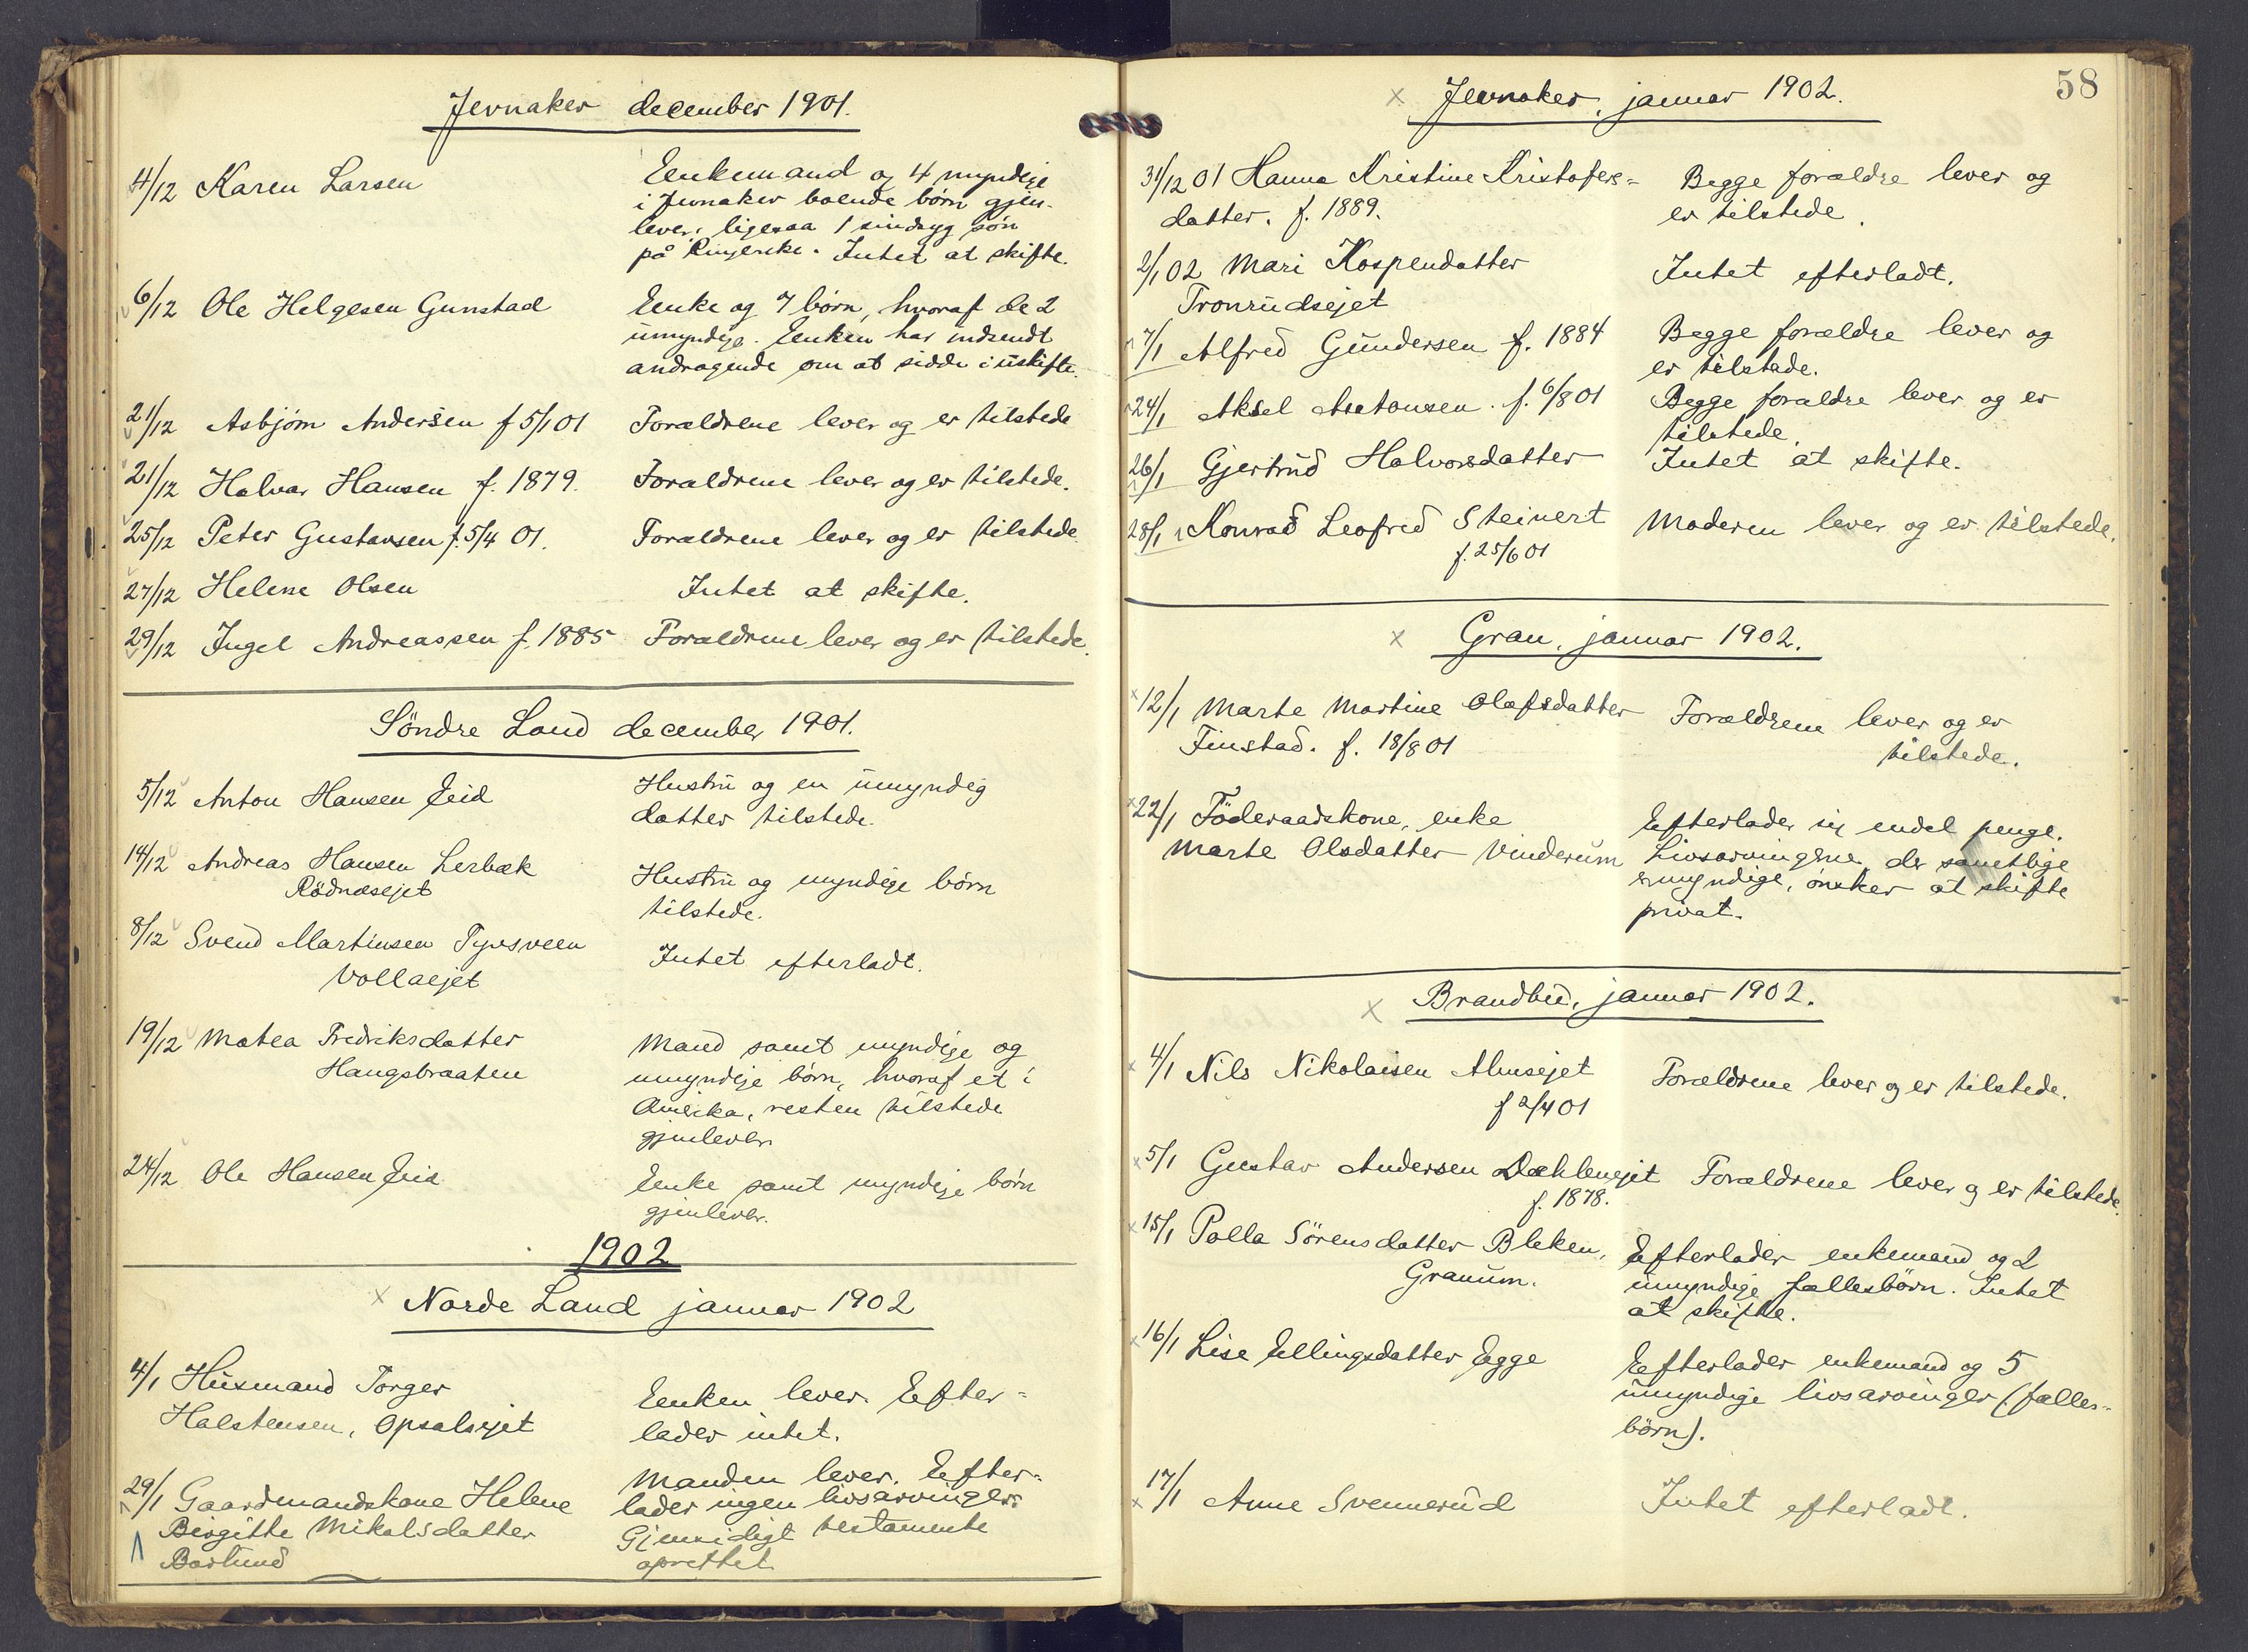 Jevnaker december 1901.
4/12 Karen Larsen
Enkemand og 4 myndige
i Jevnaker boende børn gjen-
lever, ligesaa 1 sindsyg søn
på Ringerike. Intet at skifte.
6/12 Ole Helgesen Gunstad
Enke og 7 børn, hvoraf de 2
umyndige. Enken har indsendt
andragende om at sidde i uskifte.
21/12 Asbjørn Andersen f 5/1 01 Forældrene lever og er tilstede
21/12 Halvar Hansen f. 1879. Forældrene lever og er tilstede.
25/12 Peter Gustavsen f. 5/4 01. Forældrene lever og er tilstede
27/12 Helene Olsen Intet at skifte.
29/12 Ingel Andreassen f. 1885 Forældrene lever og er tilstede.
Söndre Land december 1901.
5/12 Anton Hansen Eid
Hustru og en umyndig
datter tilstede.
14/12 Andreas Hansen Lerbæk
Rödnæsejet
Hustru og myndige börn
tilstede.
8/12 Svend Martinsen Tyvsveen
Vollaejet
Intet efterladt.
19/12 Matea Fredriksdatter
Haugsbraaten
Mand samt myndige og
umyndige börn, hvoraf et i
Amerika, resten tilstede
gjenlever.
24/12 Ole Hansen Eid
Enke samt myndige börn
gjenlever.
1902
x Nordre Land januar 1902
4/1 Husmand Torger
Halstensen, Opsalsejet
Enken lever. Efter-
lader intet.
29/1 Gaardmandskone Helene
Birgitte Mikalsdatter
Baslund
Manden lever. Efter-
lader ingen livsarvinger.
Gjensidigt testamente
oprettet
58
x Jevnaker, januar 1902.
31/12 01 Hanna Kristine Kristofers-
datter. f. 1889.
Begge forældre lever og
er tilstede.
2/1 02 Mari Kospendatter
Tronrudsejet
Intet efterladt.
7/1 Alfred Gundersen f. 1884
Begge forældre lever og
er tilstede.
24/1 Aksel Antonsen. f. 6/8 01
Begge forældre lever og er
tilstede.
26/1 Gjertrud Halvorsdatter Intet at skifte.
28/1 Konrad Leofred Steinert
f. 25/6 01
Moderen lever og er tilstede.
x Gran, januar 1902.
x 12/1 Marte Martine Olafsdatter
Finstad. f. 18/8 01
Forældrene lever og er
tilstede.
x 22/1 Föderaadskone, enke
Marte Olsdatter Vinderum
Efterlader sig endel penge.
Livsarvingerne, der samtlige
er myndige, ønsker at skifte
privat.
x Brandbu, januar 1902.
x 4/1 Nils Nikolaisen Almsejet
f 2/4 01
Forældrene lever og er tilstede.
x 5/1 Gustav Andersen Dæhlenejet
f. 1878.
Forældrene lever og er tilstede.
x 15/1 Palla Sörensdatter Bleken,
Granum.
Efterlader enkemand og 2
umyndige fællesbörn. Intet
at skifte.
x 16/1 Lise Ellingsdatter Egge
Efterlader enkemand og 5
umyndige livsarvinger (fælles-
börn).
x 17/1 Anne Svennerud Intet efterladt.